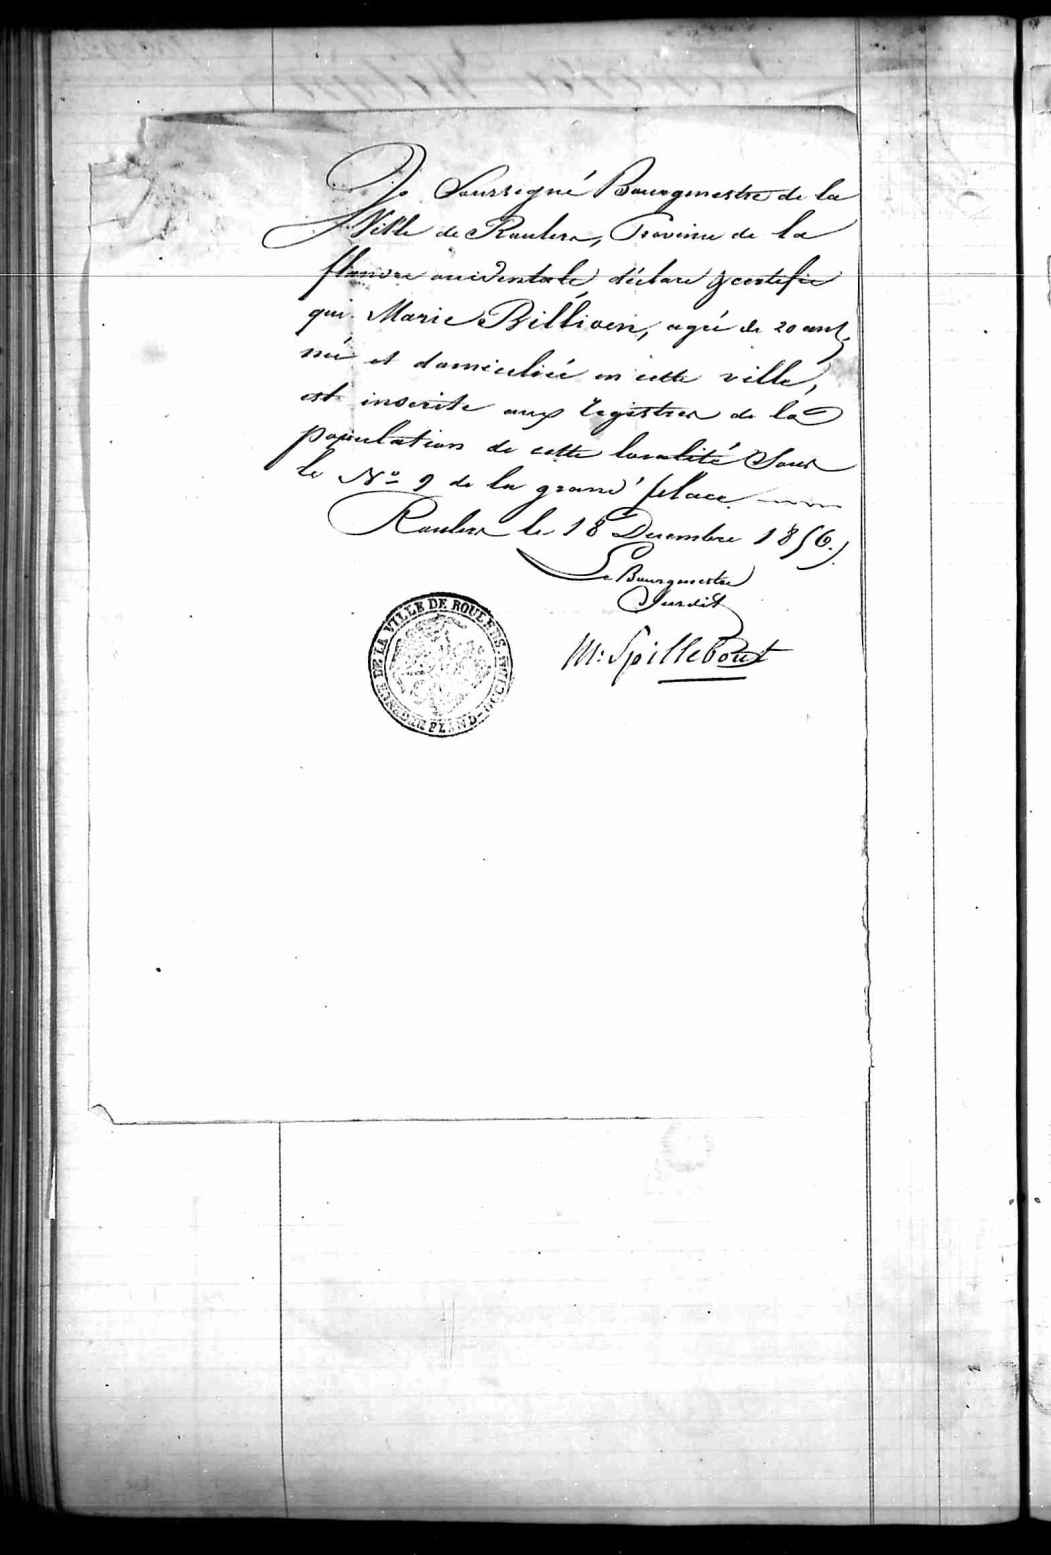 Je Soussigné Bourgmestre de la
Ville de Roulers, Province de la
flandre occidentale, déclare & certifie
que Marie Billiaen, agée de 20 ans,
née et domiciliée en cette ville,
est inscrite aux registres de la
population de cette localité Sous
le No 9 de la grand' place
Roulers le 18 Decembre 1856.
Le Bourgmestre
Susdit
M: Spillebout
DE LA VILLE DE ROULERS
FLAND-OCCID